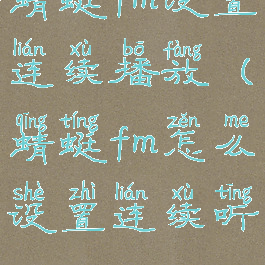 蜻蜓fm设置
lián xù bō fàng
连续播放（
qīng tíng zěn me
蜻蜓fm怎么
shè zhì lián xù tīng
设置连续听